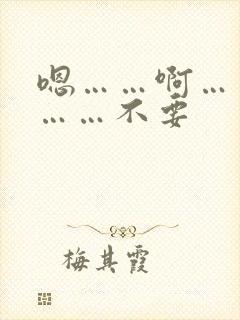 嗯……啊…
……不要
梅其霞